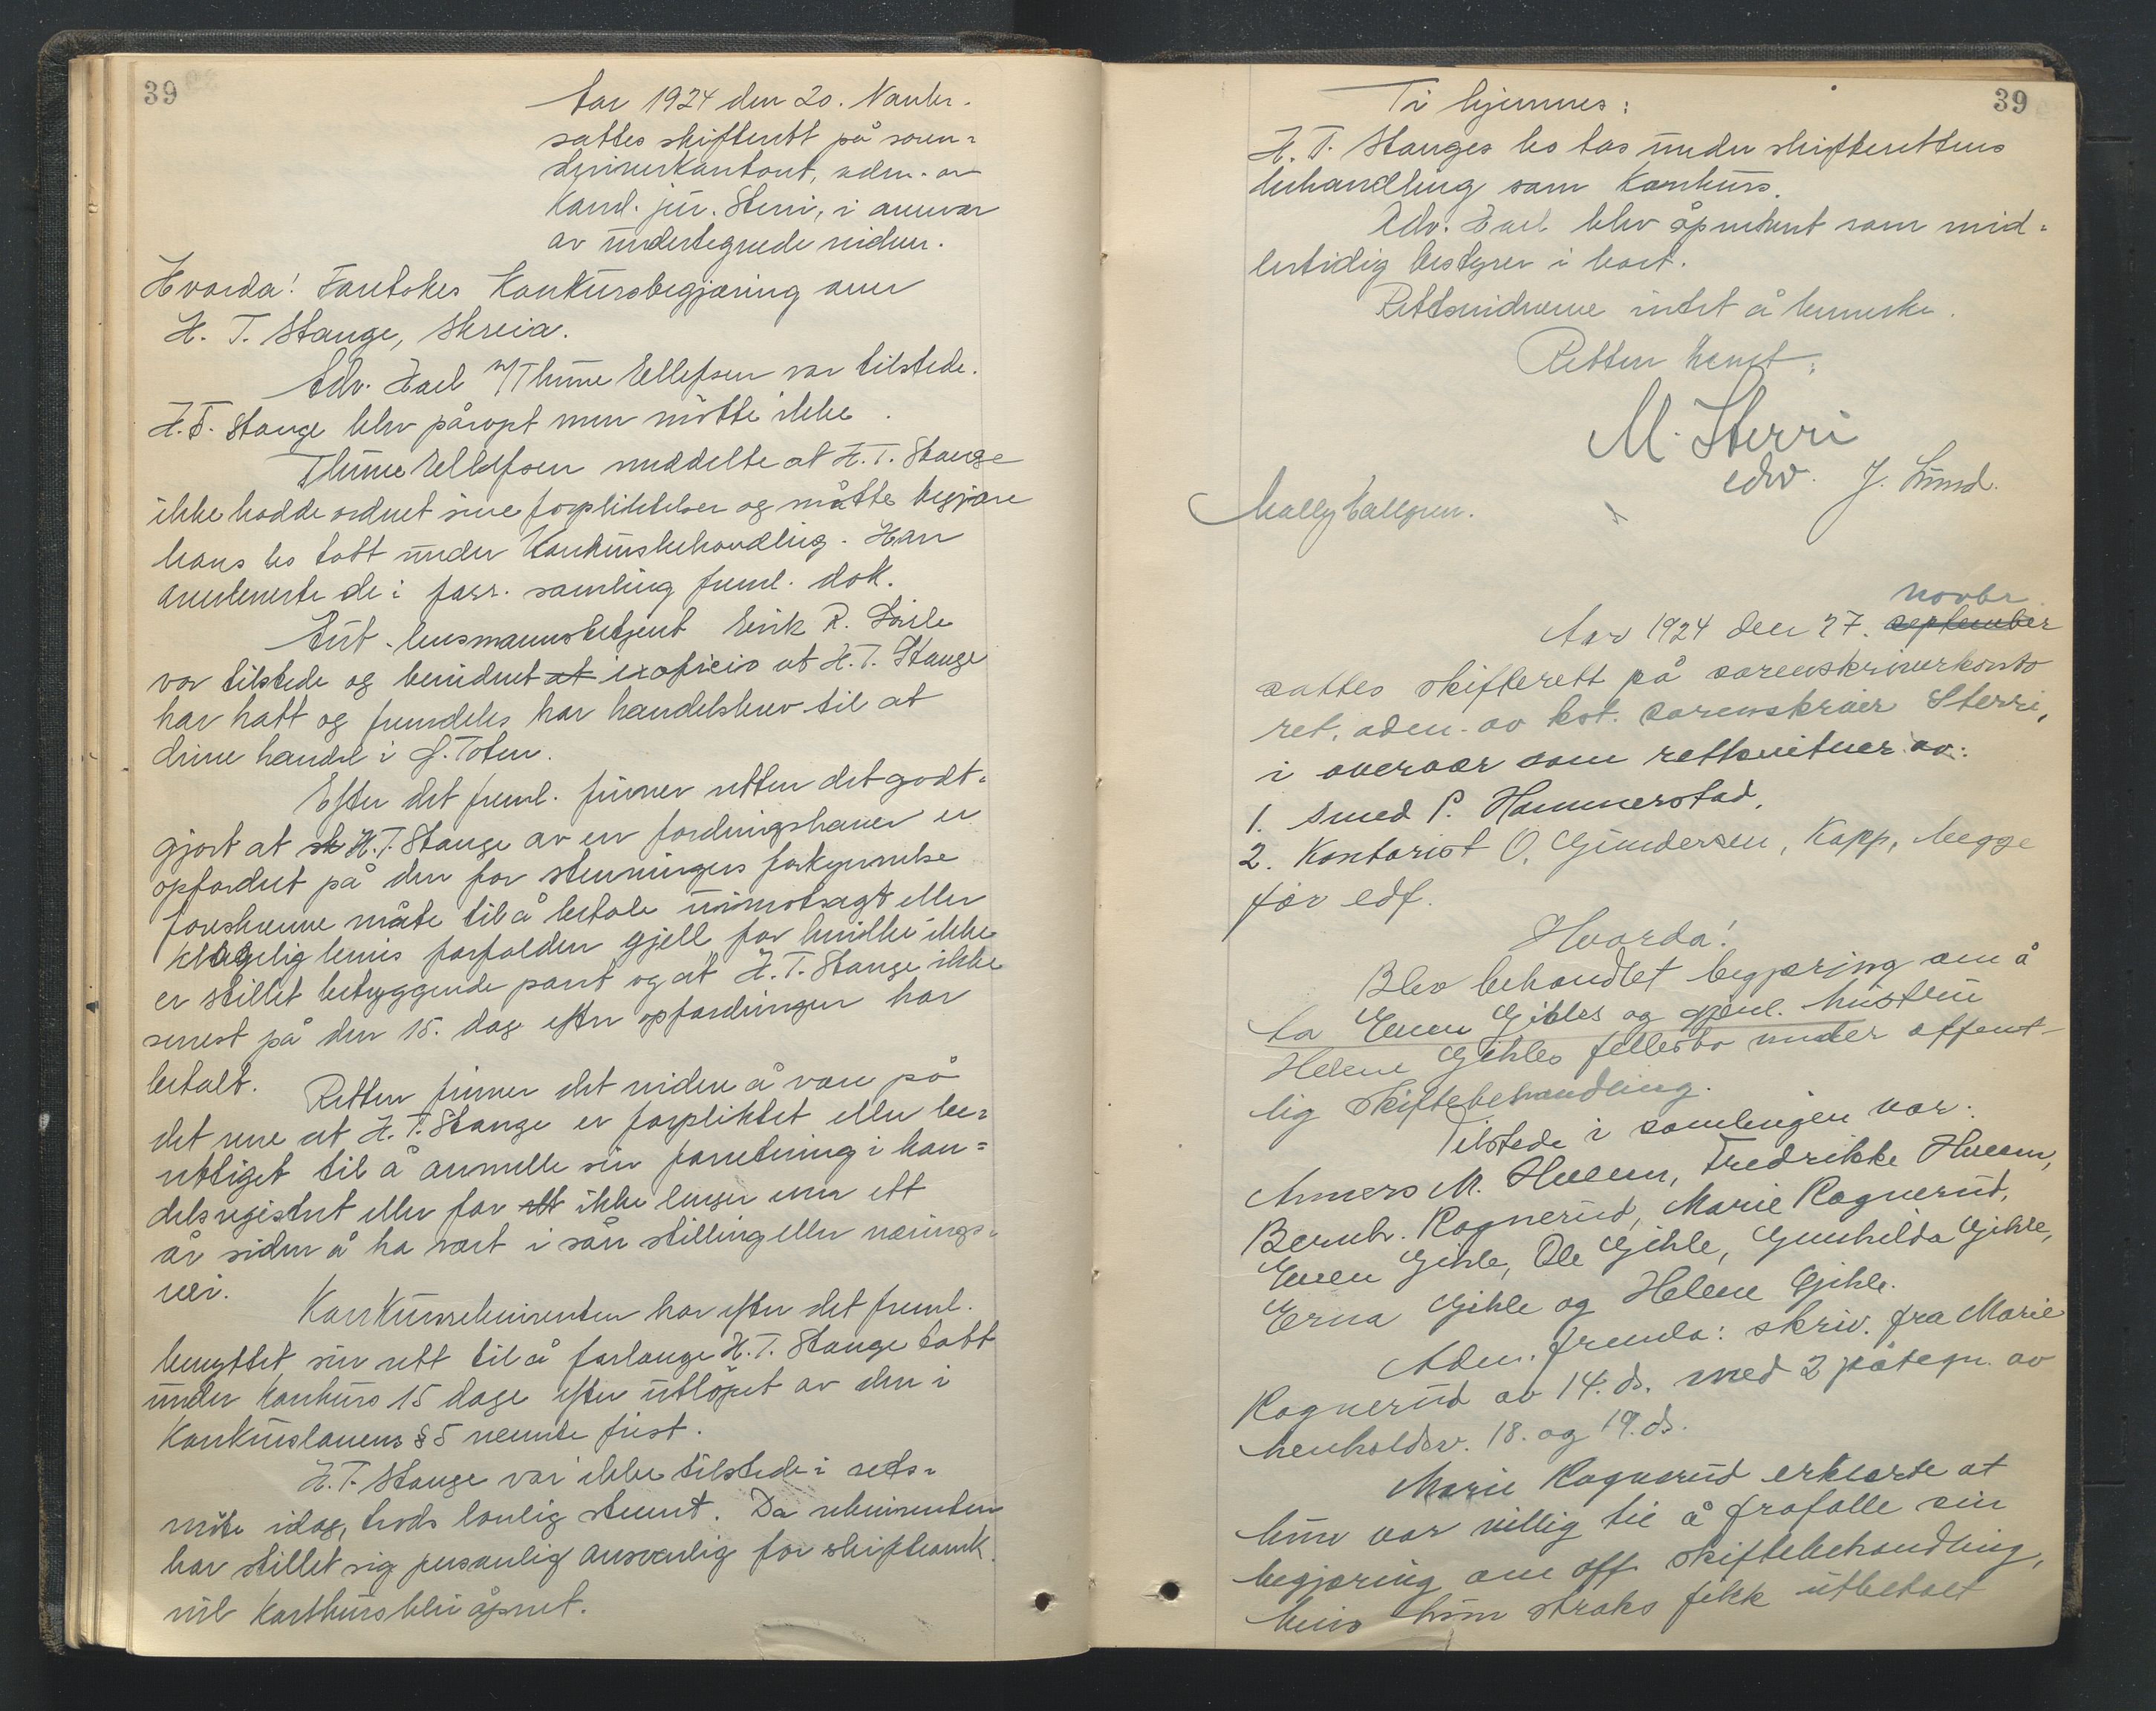 39
Aar 1924 den 20. Novbr.
sattes skifterett på soren-
skriverkontoret, adm. av
Kand. jur. Sterri, i overvær
av undertegnede vidner.
Hvorda! Foretokes Konkursbegjæring over
H. T. Stange, Skreia.
Adv. Hael v/Thune Ellefsen var tilstede.
H. T. Stange blev påropt men møtte ikke.
Thune Ellefsen meddelte at H. T. Stange
ikke hadde ordnet sine forpliktelser og måtte begjære
hans bo tatt under Konkursbehandling. Han
anerkjente de i forr. samling freml. dok.
Aut. lensmannsbetjent Erik R.
var tilstede og bevidnet at ex officio at H. T. Stange
har hatt og fremdeles har handelsbrev til at
drive handel i Ø. Toten.
Efter det freml. finner retten det godt-
gjort at st H. T. Stange av en fordringshaver er
opfordret på den for stevningers forkynnelse
foreskrevne måte til å betale uimotsagt eller
klagelig bevis forfalden gjell for hvilke ikke
er stillet betryggende pant og at H. T. Stange ikke
senest på den 15. dag efter opfordringen har
betalt.
Retten finner det videre å være på
det rene at H. T. Stange er forpliktet eller be-
rettiget til å anmelle sin forretning i han-
delsregistret eller for ett ikke lenger enn ett
år siden å ha vært i sån stilling eller nærings-
vei.
Konkursrekvirenten har efter det freml.
benyttet sin rett til å forlange H. T. Stange tatt
under konkurs 15 dage efter utløpet av den i
Konkurslovens § 5 nevnte frist.
H. T. Stange var ikke tilstede i retts-
møte idag, trods lovlig stevnt. Da rekvirenten
har stillet sig personlig ansvarlig for skifteomk.
vil Konkurs bli åpnet.
39
Ti kjennes:
H. T. Stanges bo tas under skifterettens
behandling som Konkurs.
Adv. Hael blev opnevnt som mid-
lertidig bestyrer i boet.
Rettsvidnerne intet å bemerke.
Retten hevet.
M. Sterri
edv. J. Lund.
Molly Hallgren.
novbr.
Aar 1924 den 27. september
sattes skifterett på sorenskriverkonto
ret, adm. av kst. sorenskriver Sterri,
i overvær som rettsvitner av:
1. Smed P. Hammerstad,
2. Kontorist O. Gundersen, Kapp, begge
før edf.
Hvorda!
Blev behandlet begjæring om å
ta Even Gihles og gjenl. hustru
Helene Gihles fellesbo under offent-
lig skiftebehandling.
Tilstede i samlingen var:
Anners M. Hveem, Fredrikke Hveem,
Bernh. Rognerud, Marie Rognerud,
Even Gihle, Ole Gihle, Gunhilda Gihle,
Erna Gihle og Helene Gihle.
Adm. fremla: skriv. fra Marie
Rognerud av 14. ds. med 2 påtegn. av
henholdsv. 18. og 19. ds.
Marie Rognerud erklærte at
hun var villig til å frafalle sin
begjæring om off. skiftebehandling,
hvis hun straks fikk utbetalt